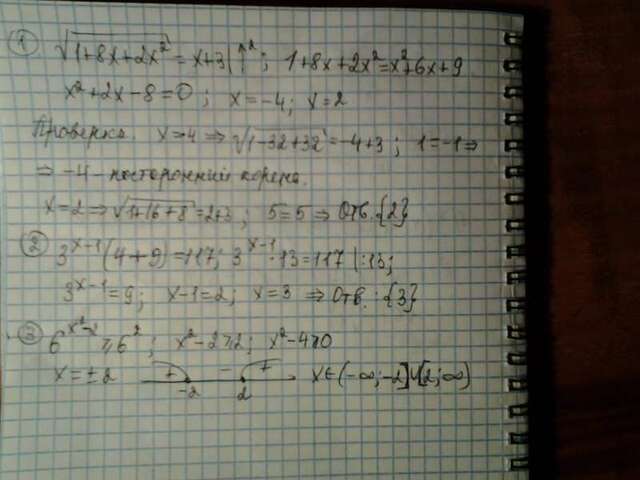 ① √(1+8x+2x²) = x+3 |↑²; 1+8x+2x²=x²+6x+9
x²+2x-8=0; x=-4; x=2
Проверка. x=-4 ⇒ √(1-32+32)=-4+3; 1=-1 ⇒
⇒ -4 - посторонний корень.
x=2 ⇒ √(1+16+8)=2+3; 5=5 ⇒ Отв. {2}
② 3^(x-1)(4+9)=117; 3^(x-1)·13=117 |:13;
3^(x-1)=9; x-1=2; x=3 ⇒ Отв.: {3}
③ 6^(x²-2)⩾6²; x²-2⩾2; x²-4⩾0
x=±2 + - + x∈(-∞;-2]∪[2;∞)
-2 2